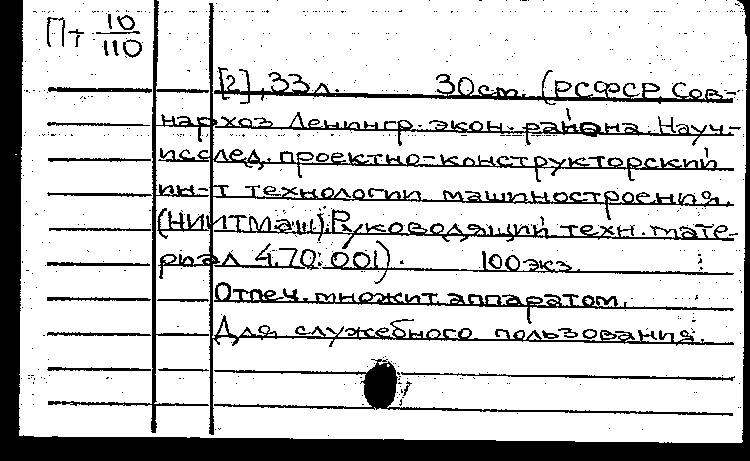 Пт 10/110
[2], 33 л. 30 см. (РСФСР. Сов-
нархоз Ленингр. экон. района. Науч.-
исслед. проектно-конструкторский
ин-т технологии машиностроения.
(НИИТМаш). Руководящий техн. мате-
риал 4.70.001). 100 экз.
Отпеч. множит. аппаратом.
Для служебного пользования.